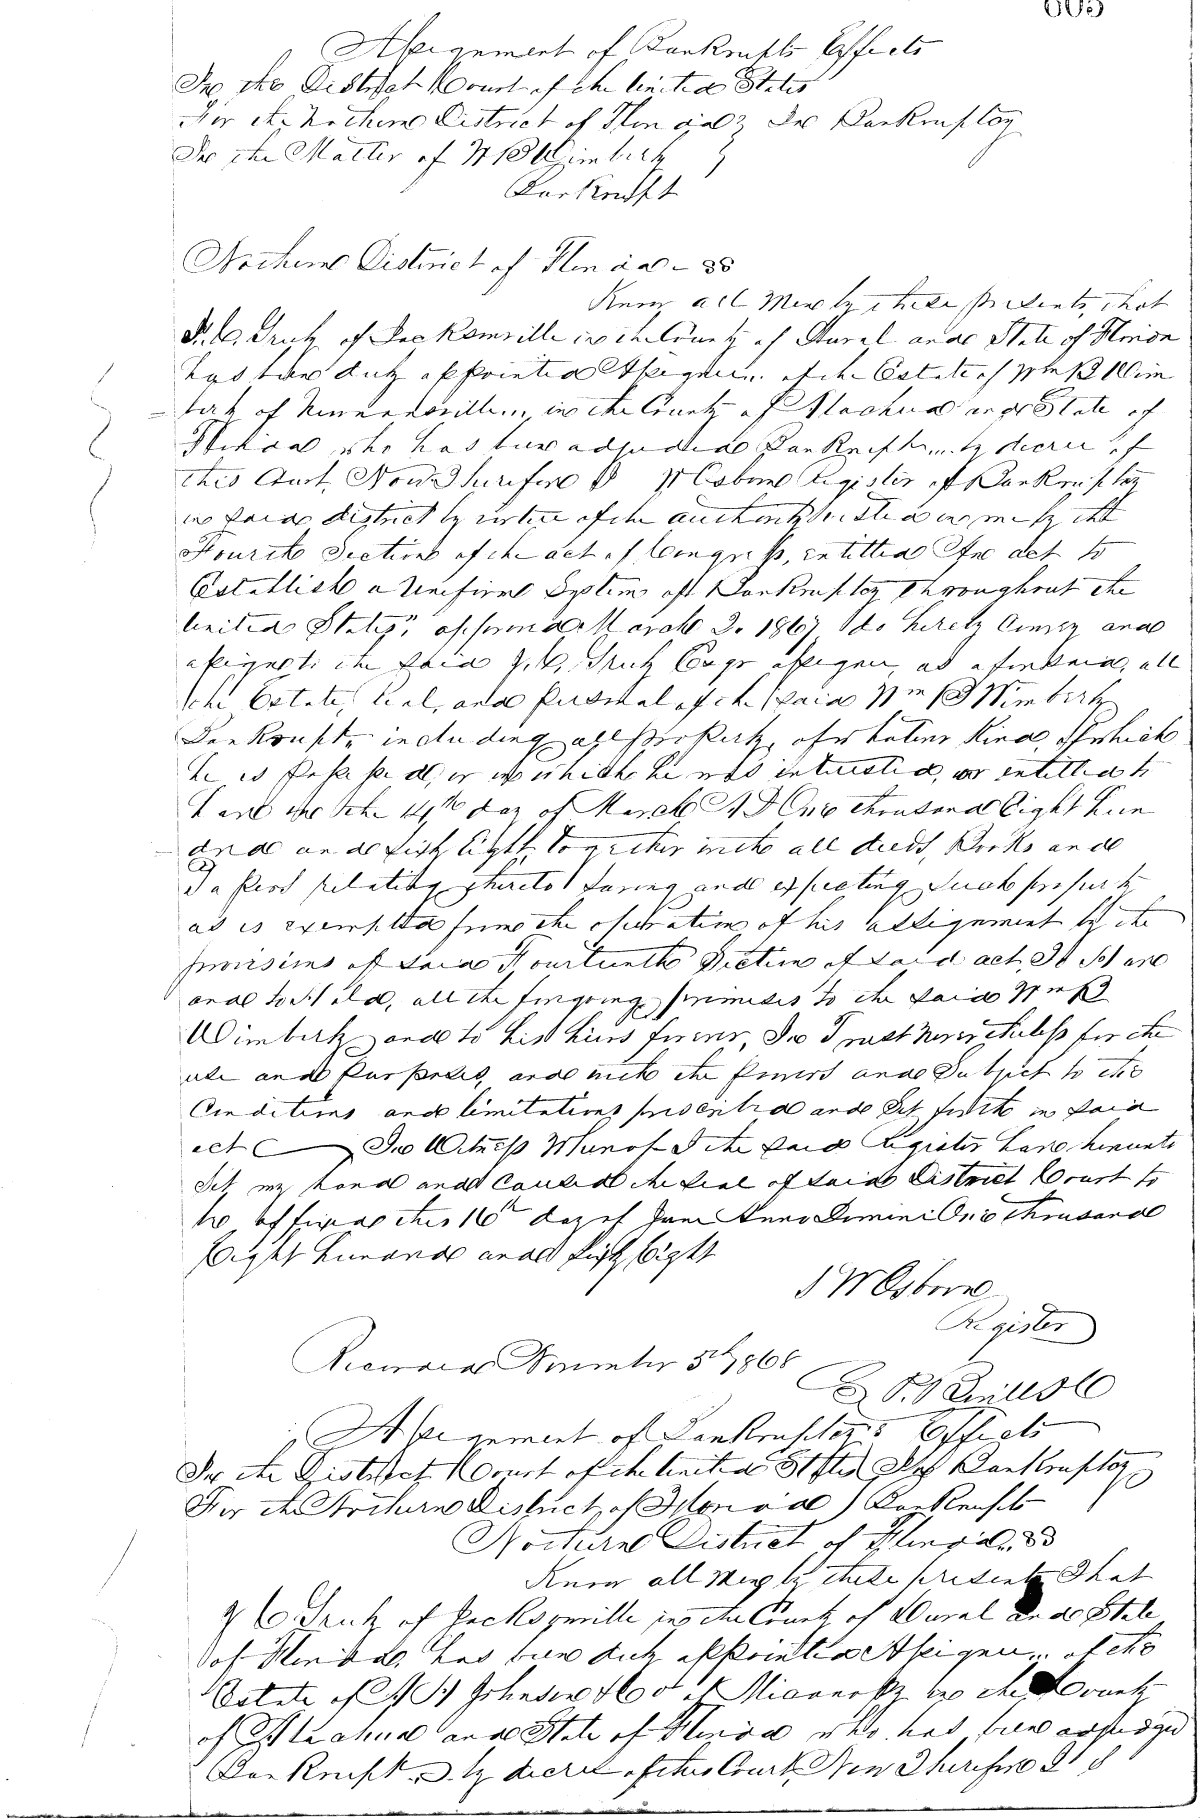 605
Assignment of Bankrupts Effects
In the District Court of the United States
For the Northern District of Florida } In Bankruptcy
In the Matter of W B Wimberly }
Bankrupt
Northern District of Florida - SS
Know all Men by these presents, that
of Jacksonville in the County of Duval and State of Florida
has been duly appointed Assignee.. of the Estate of Wm B Wim
berly of Newnansville.., in the County of Alachua and State of
Florida who has been adjudged Bankrupt.... by decree of
this Court, Now Therefore I W Osborn Register of Bankruptcy
in said district by virtue of the authority vested in me by the
Fourth Section of the act of Congress, entitled An act to
Establish a Uniform System of Bankruptcy throughout the
United States", approved March 2. 1867, do hereby Convey and
assign to the said Esqr assignee, as aforesaid, all
the Estate, Real, and Personal of the said Wm B Wimberly
Bankrupt, including all property, of whatever Kind, of which
he is possessed, or in which he was interested, or entitled to
have on the 14th day of March A D One thousand Eight Hun
dred and sixty Eight, together with all deeds, Books and
Papers relating thereto saving and excepting Such property
as is exempted from the operation of his assignment by the
provisions of said Fourteenth Section of said act, To Have
and to Hold, all the forgoing premises to the said Wm B
Wimberly and to his heirs forever, In Trust nevertheless for the
use and Purposes, and with the powers and Subject to the
Conditions and limitations prescribed and Set forth in said
act In Witness Whereof I the said Register have hereunto
Set my hand and Caused the seal of said District Court to
be affixed this 16th day of June Anno Domini One thousand
Eight hundred and sixty Eight
W Osborn
Register
Recorded November 5th 1868
Assignment of Bankruptcy's Effects
In the District Court of the United States In Bankruptcy
For the Northern District of Florida ) Bankrupts
Northern District of Florida.. SS
Know all Men by these presents That
of Jacksonville in the County of Duval and State
of Florida, has been duly appointed Assignee... of the
Estate of Johnson & Co of Micanopy in the County
of Alachua and State of Florida who has been adjudged
Bankrupt.. by decree of this Court, Now Therefore I